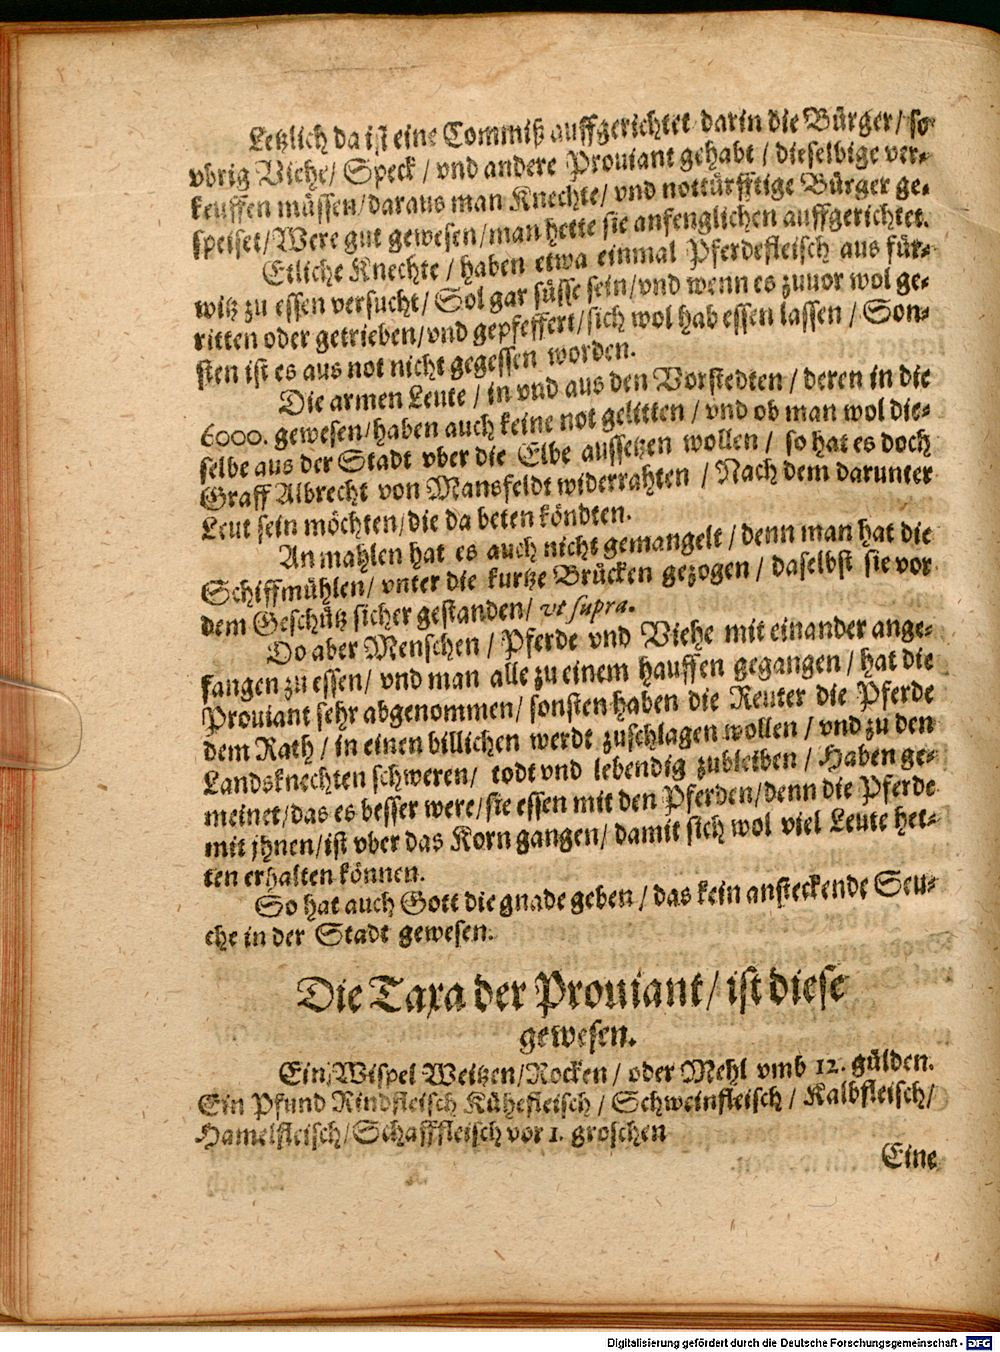 Letzlich da ist eine Commiß auffgerichtet darin die Bürger / so
vbrig Viehe / Speck / vnd andere Prouiant gehabt / dieselbige ver-
keuffen müssen / daraus man Knechte / vnd nottürfftige Bürger ge-
speiset / Were gut gewesen / man hette sie anfenglichen auffgerichtet.
Etliche Knechte / haben etwa einmal Pferdefleisch aus für-
witz zu essen versucht / Sol gar süsse sein / vnd wenn es zuuor wol ge-
ritten oder getrieben / vnd gepfeffert / sich wol hab essen lassen / Son-
sten ist es aus not nicht gegessen worden.
Die armen Leute / in vnd aus den Vorstedten / deren in die
6000. gewesen / haben auch keine not gelitten / vnd ob man wol die-
selbe aus der Stadt vber die Elbe aussetzen wollen / so hat es doch
Graff Albrecht von Mansfeldt widerrahten / Nach dem darunter
Leut sein möchten / die da beten köndten.
An mahlen hat es auch nicht gemangelt / denn man hat die
Schiffmühlen / vnter die kurtze Brücken gezogen / daselbst sie vor
dem Geschütz sicher gestanden / vt supra.
Do aber Menschen / Pferde vnd Viehe mit einander ange-
fangen zu essen / vnd man alle zu einem hauffen gegangen / hat die
Prouiant sehr abgenommen / sonsten haben die Reuter die Pferde
dem Rath / in einen billichen werdt zuschlagen wollen / vnd zu den
Landsknechten schweren / todt vnd lebendig zubleiben / Haben ge-
meinet / das es besser were / sie essen mit den Pferden / denn die Pferde
mit jhnen / ist vber das Korn gangen / damit sich wol viel Leute het-
ten erhalten können.
So hat auch Gott die gnade geben / das kein ansteckende Seu-
che in der Stadt gewesen.
Die Taxa der Prouiant / ist diese
gewesen.
Ein Wispel Weitzen / Rocken / oder Mehl vmb 12. gülden.
Ein Pfund Rindfleisch Kühefleisch / Schweinfleisch / Kalbfleisch /
Hamelfleisch / Schafffleisch vor 1. groschen
Eine
Digitalisierung gefördert durch die Deutsche Forschungsgemeinschaft - DFG